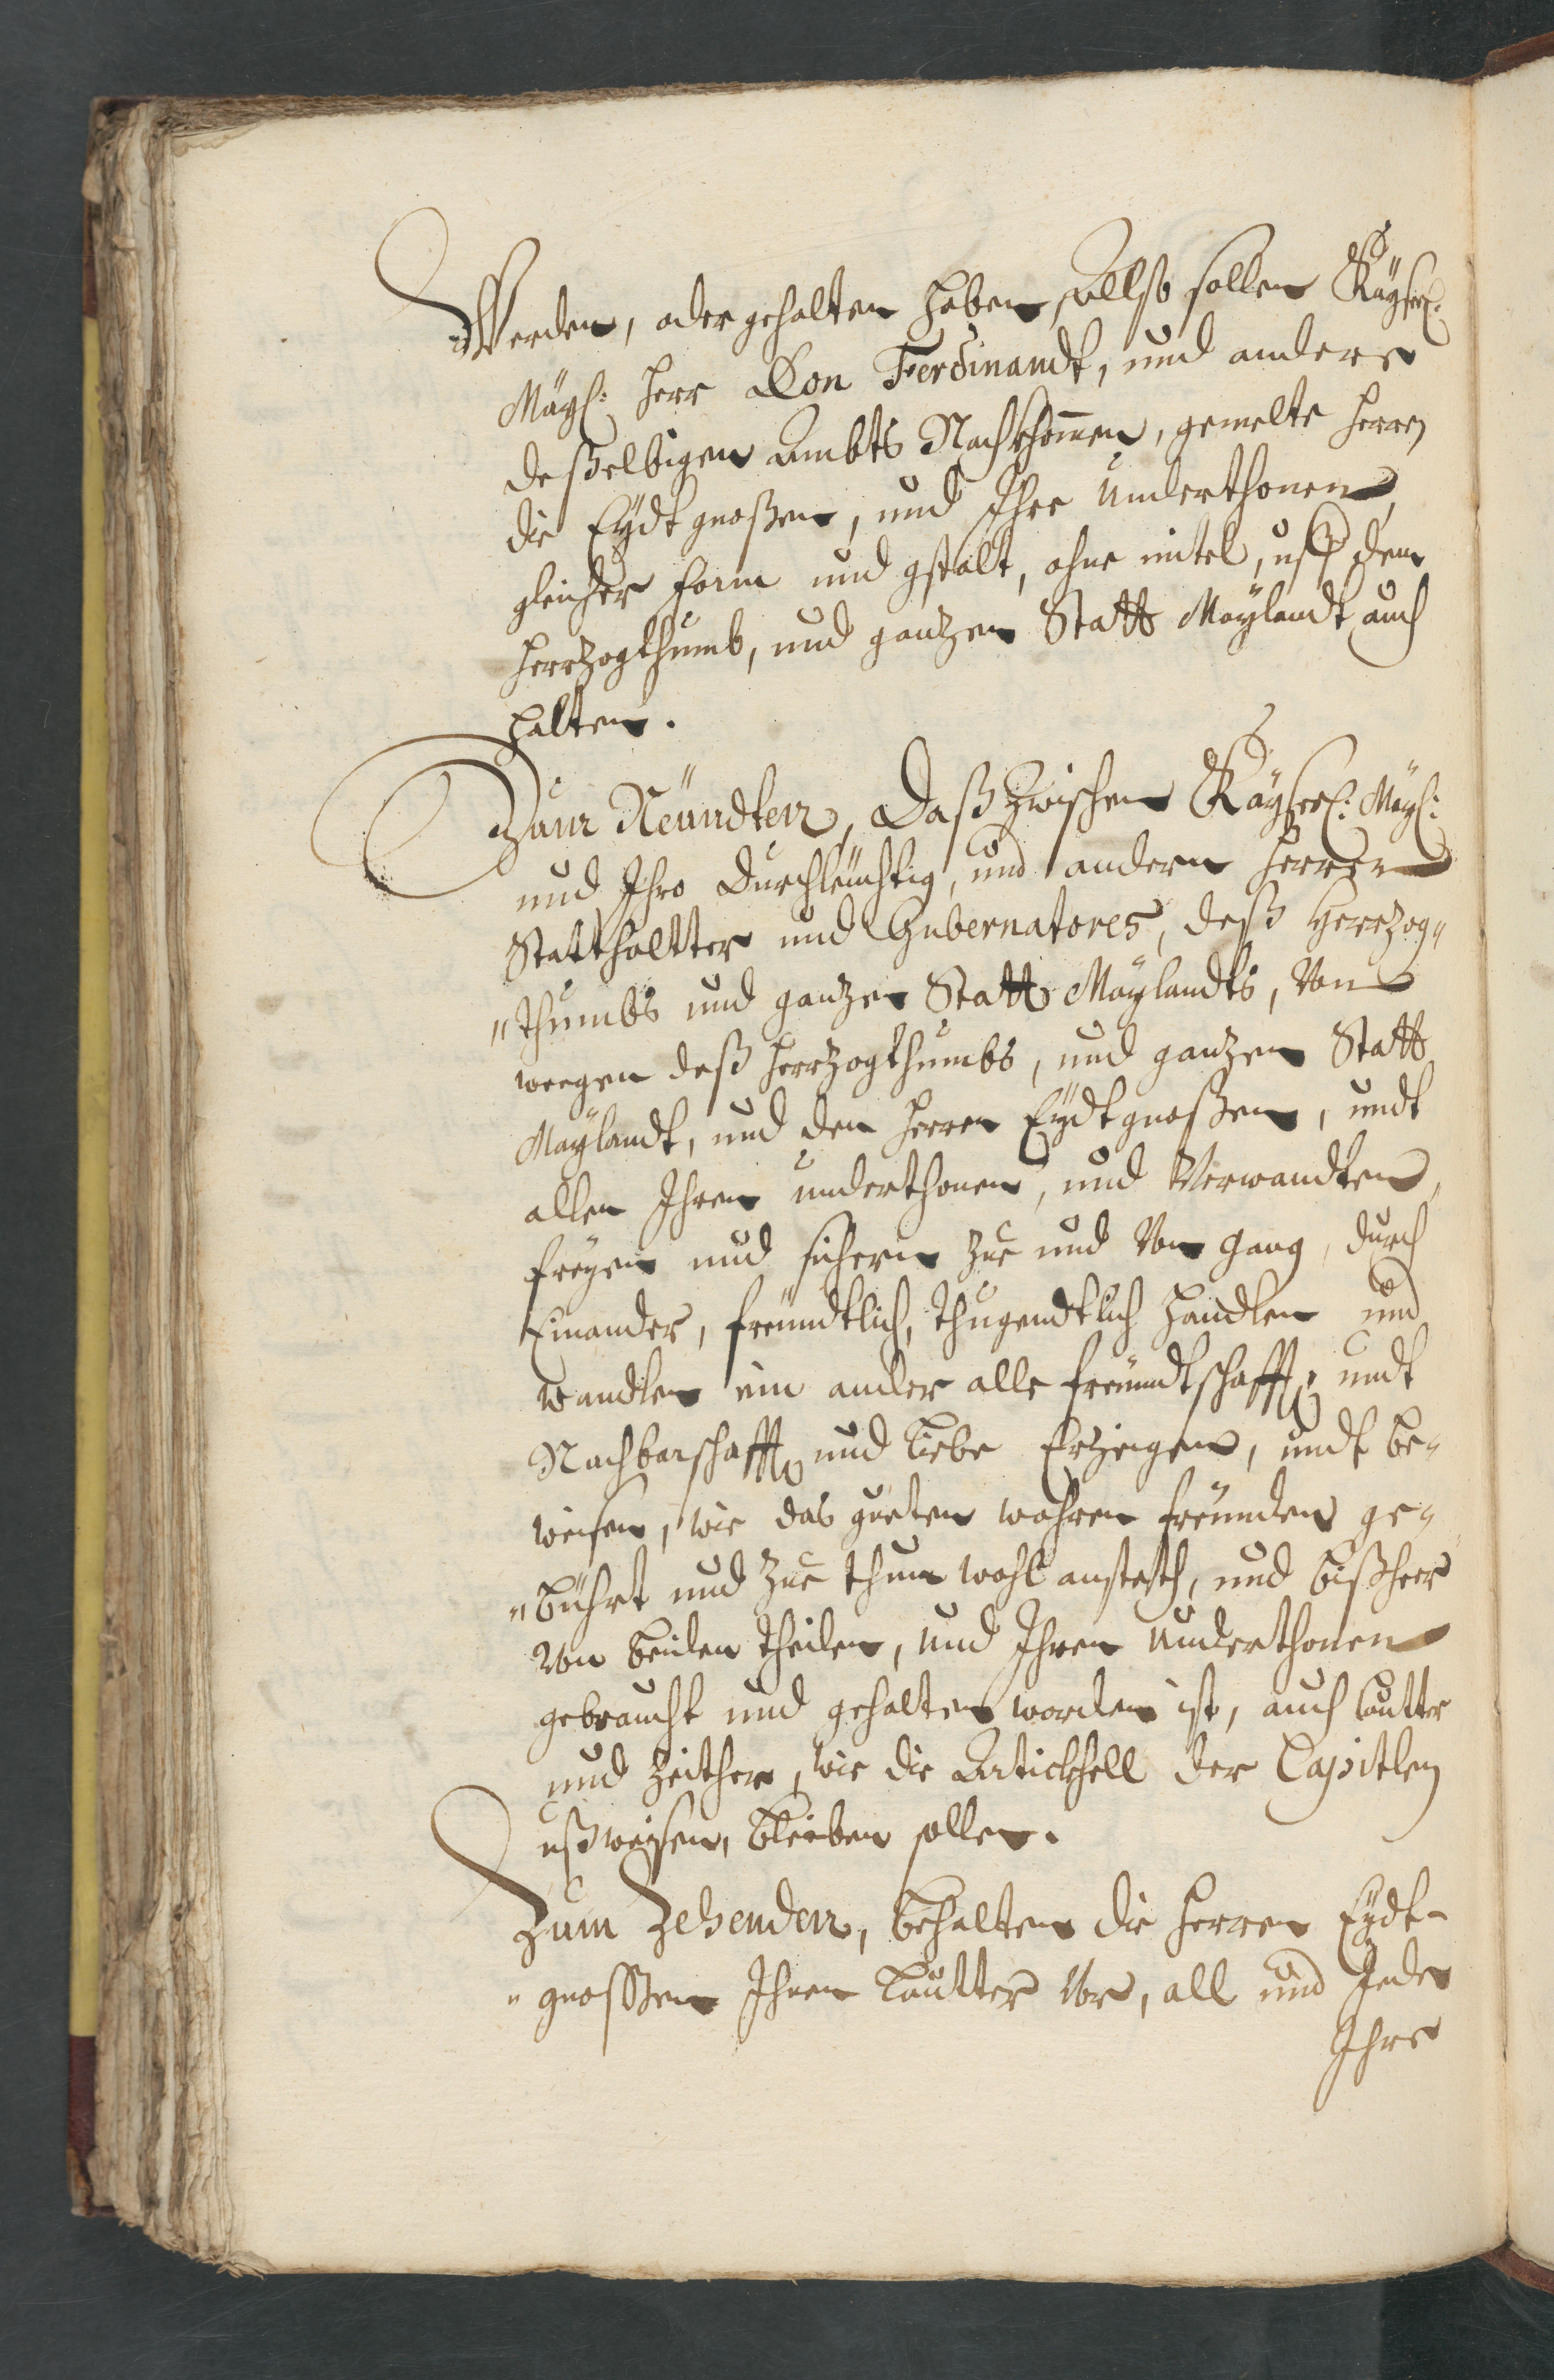 Werden, oder gehalten haben, Allso sollen Käyserl:
Mäys: Herr Don Ferdinandt, und andere
deßelbigen Ambts Nachkhommen, gemelte Herren
die Eÿdtgnoßen, und Ihre Underthonen,
gleicher form und gstalt, ohne mitel, uß dem
Herrzogthumb, und gantzen Statt Maÿlandt auch
halten.
Zum Neündten, Daß zwischen Käyserl: Mäys:
und Ihro Durchleüchtig, und andern Herren
Statthaltter und Gubernatores, deß Herrzog"
"thumbs und gantzen Statt Maÿlandts, Von
weegen deß Herrzogthumbs, und gantzen Statt
Maÿlandt, und den Herren Eÿdtgnoßen, undt
allen Ihren underthonen, und Verwandten,
freÿen und sichern zue und Von gang, durch
Einander, freündtlich, thugendtlich handlen und
wandlen ein ander alle freündtschafft, undt
Nachbarschafft und Liebe Erzeigen, undt be"
weisen, wie das gueten wahren freünden ge"
"bührt und zue thun wohl ansteth, und bißheer
Von beiden theilen, und Ihren Underthonen
gebraucht und gehalten worden ist, auch lautter
und zeither, wie die Artickhell der Capitlen
ußweisen, bleiben sollen.
Zum Zehenden, behalten die Herren Eÿdt-
"gnossen Ihnen Lautter Vor, all und Jede
Ihre